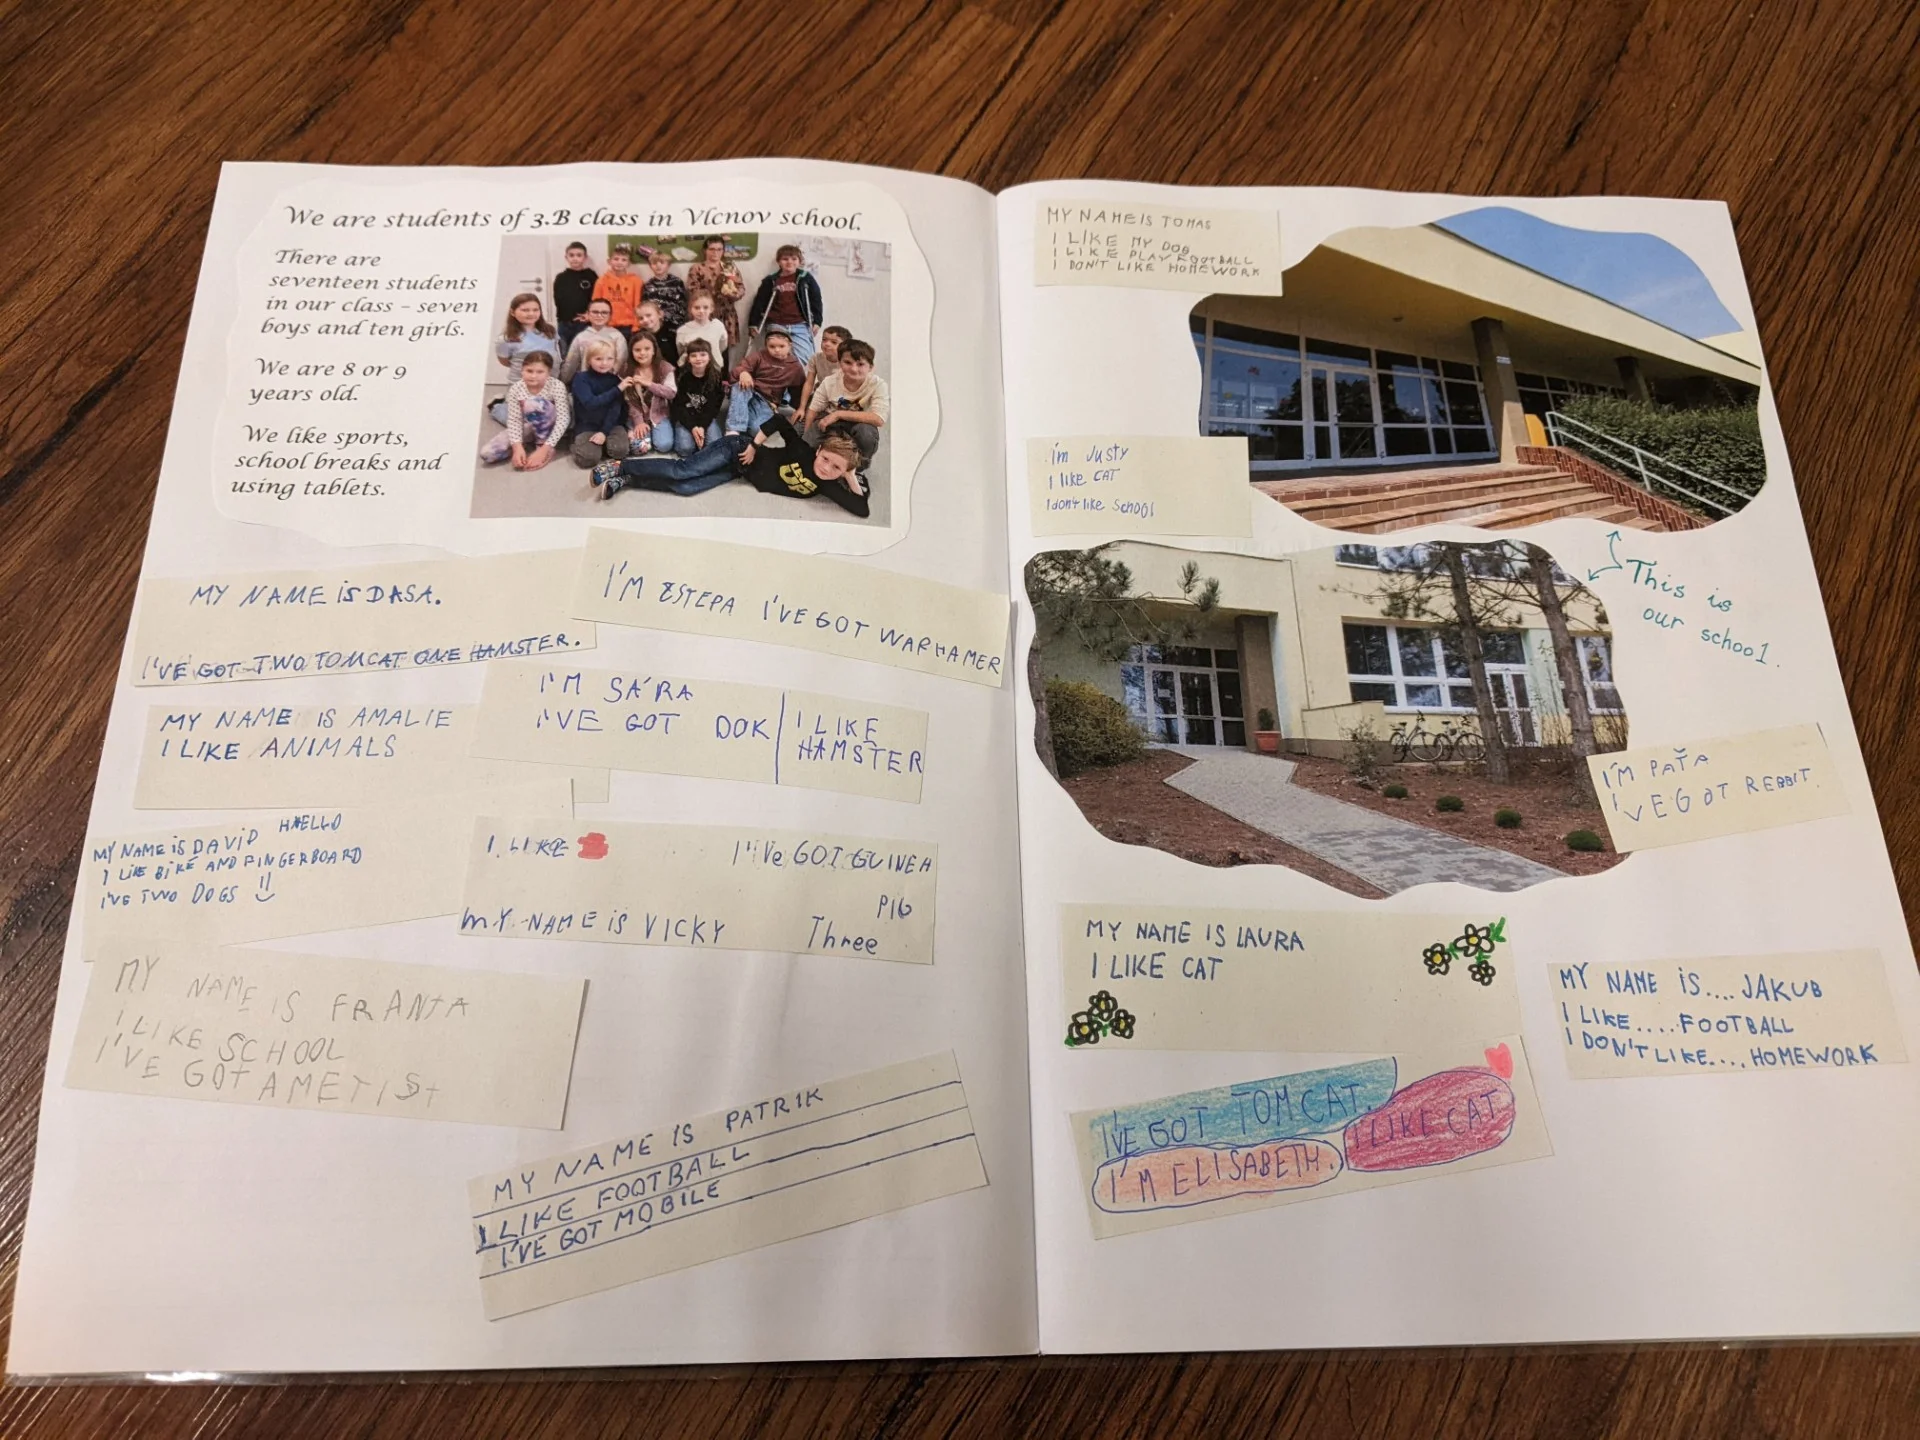 We are students of 3.B class in Vlcnov school.
There are
seventeen students
in our class – seven
boys and ten girls.
We are 8 or 9
years old.
We like sports,
school breaks and
using tablets.
MY NAME iS DASA.
I'VE GOT TWO TOMCAT ONE HAMSTER.
I'M ESTEPA I'VE GOT WARHAMER
MY NAME IS AMALIE
I LIKE ANIMALS
I'M SÁRA
I'VE GOT DOK
I LIKE
HAMSTER
HAELLO
MY NAME iS DAViD
I LIKE BiKE AND FINGERBOARD
I'VE TWO DOGS !!
I LIKE
I'VE GOT GUINEA
PIG
MY NAME IS VICKY
Three
MY NAME IS FRANTA
I LIKE SCHOOL
I'VE GOT AMETIST
MY NAME IS PATRIK
I LIKE FOOTBALL
I'VE GOT MOBILE
MY NAME IS TOMAS
I LIKE MY DOG
I LIKE PLAY FOOTBALL
I DON'T LIKE HOMEWORK
i'm Justy
I like CAT
I don't like School
This is
our school.
I'M PAŤA
I'VE GOT REBBIT.
MY NAME IS LAURA
I LIKE CAT
MY NAME iS.... JAKUB
I LIKE.... FOOTBALL
I DON'T LIKE.... HOMEWORK
I'VE GOT TOMCAT.
I LIKE CAT
I'M ELISABETH.